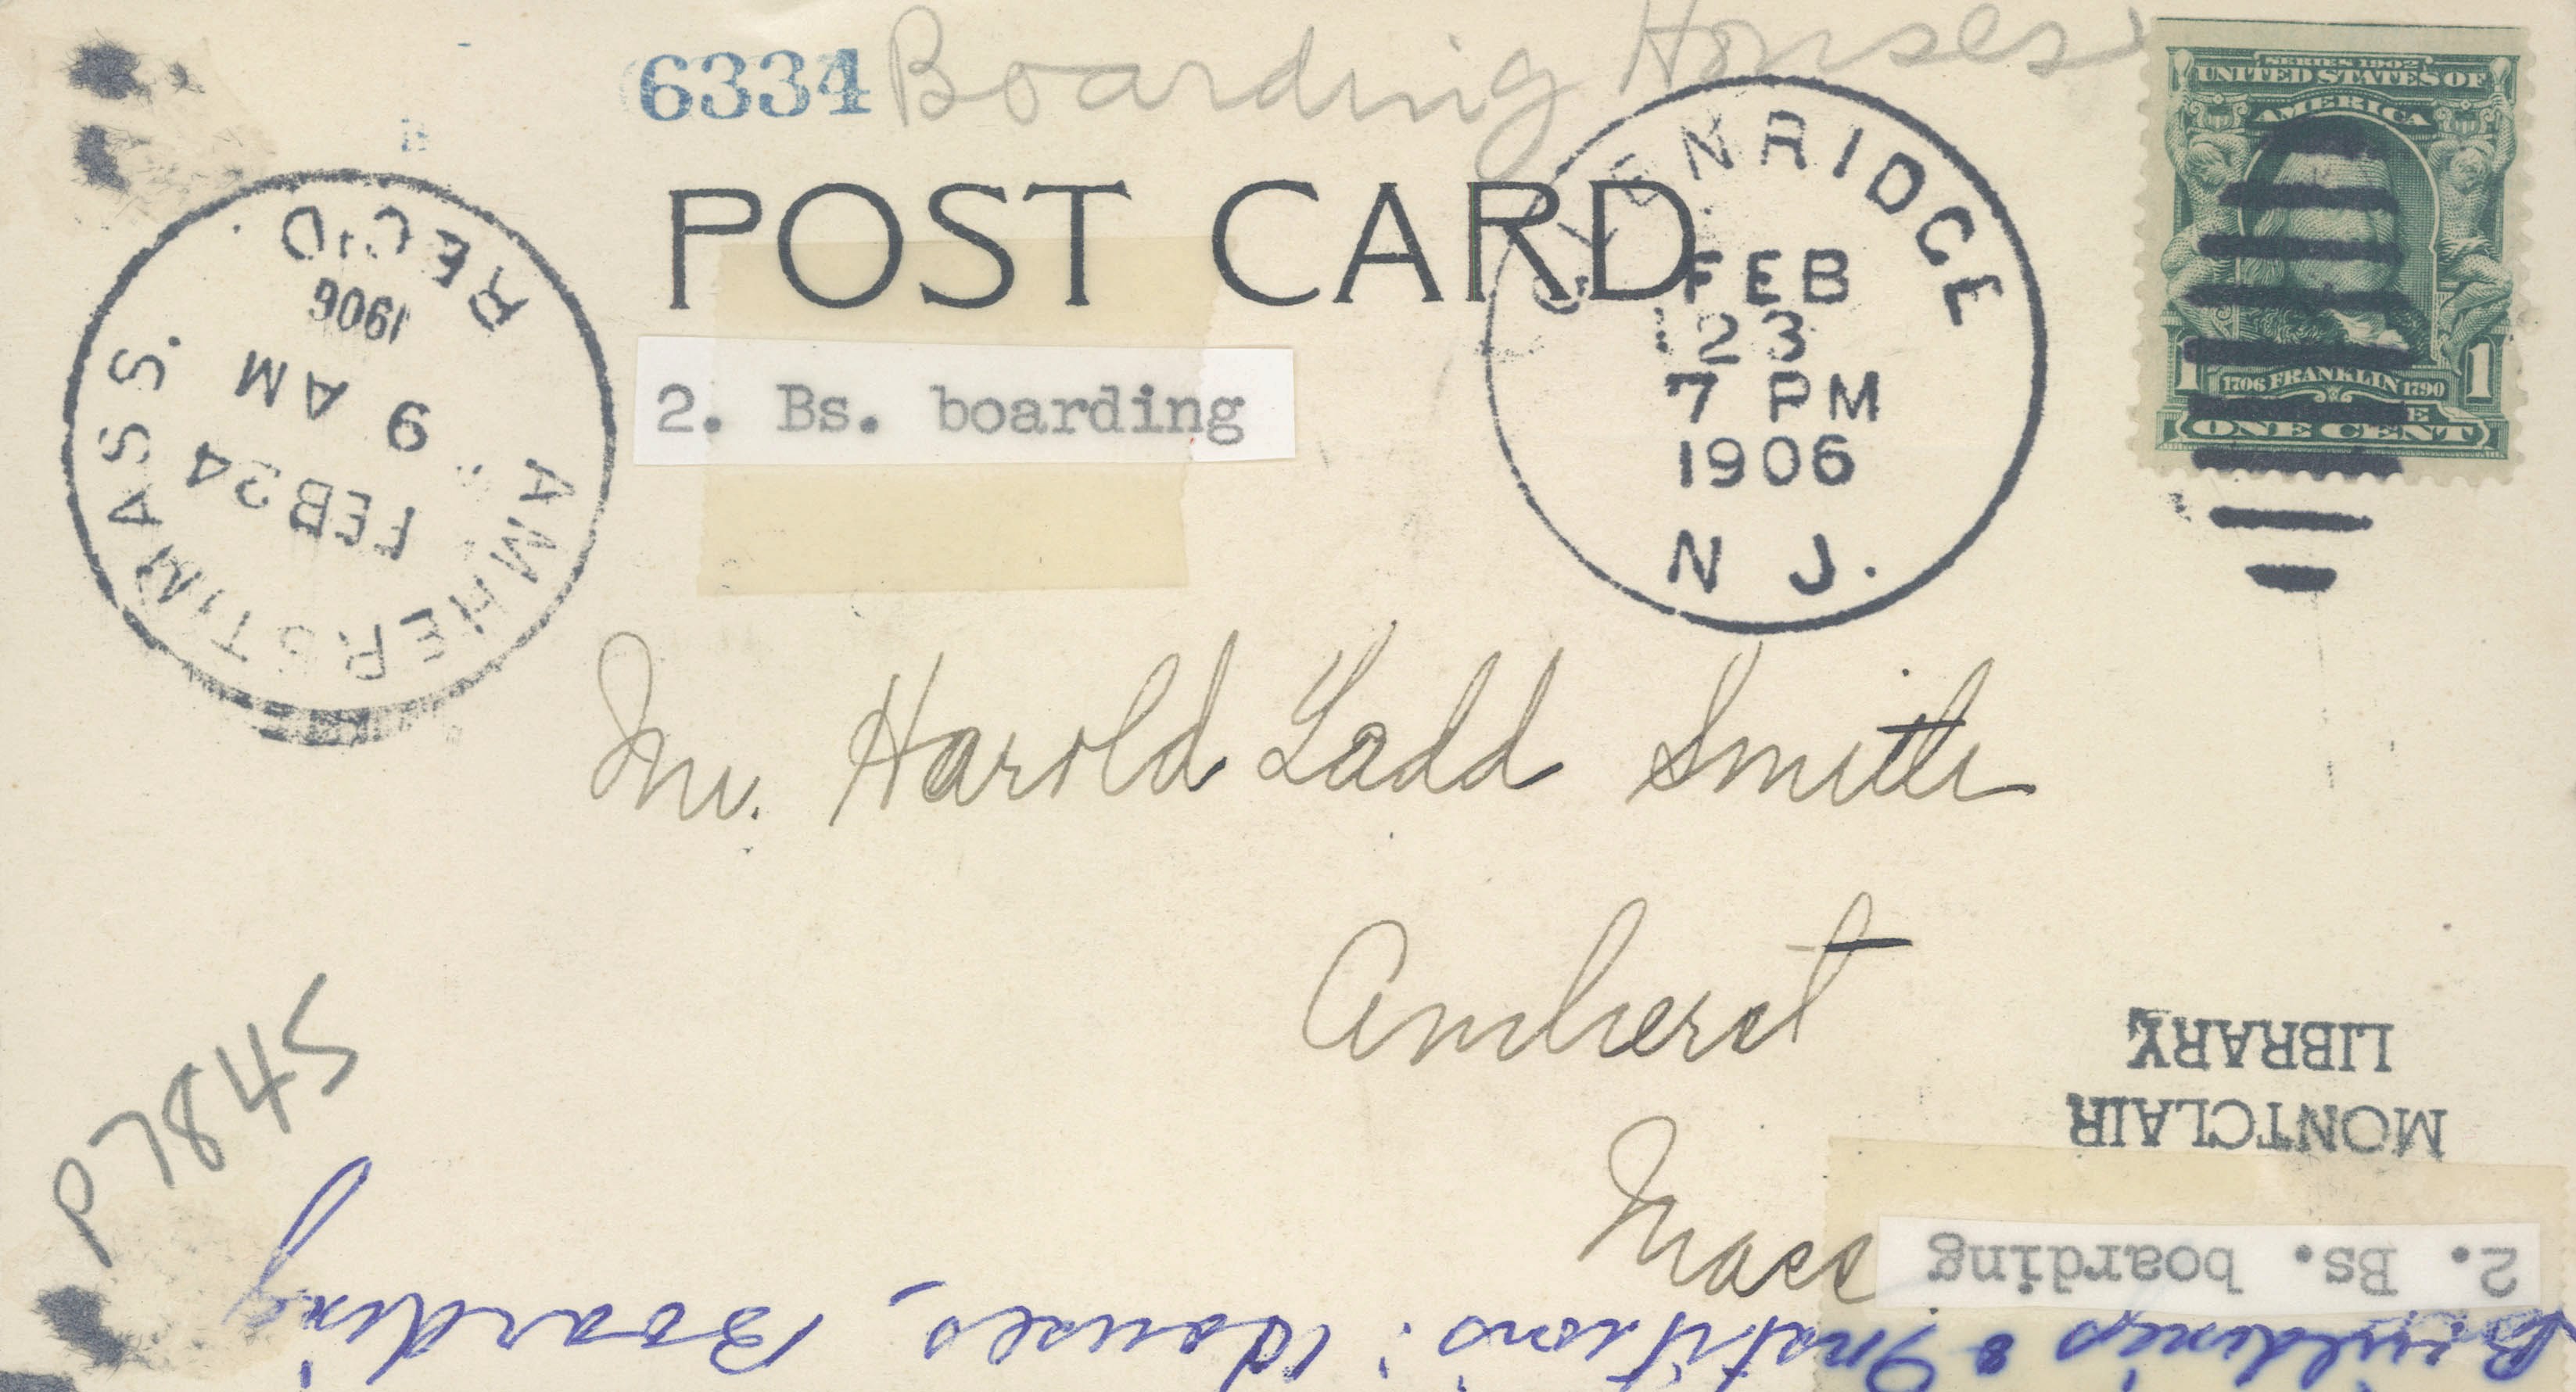 6334 Boarding Houses
SERIES 1902
UNITED STATES OF
AMERICA
1 1706 FRANKLIN 1790 1
ONE CENT
POST CARD
GLENRIDGE
FEB
23
7 PM
1906
N J.
REC'D
1906
9 AM
FEB 24
AMHERST MASS.
2. Bs. boarding
Mr. Harold Ladd Smith
Amherst
Mass
P7845
MONTCLAIR
LIBRARY
2. Bs. boarding
Buildings & Institutions: Houses, Boarding